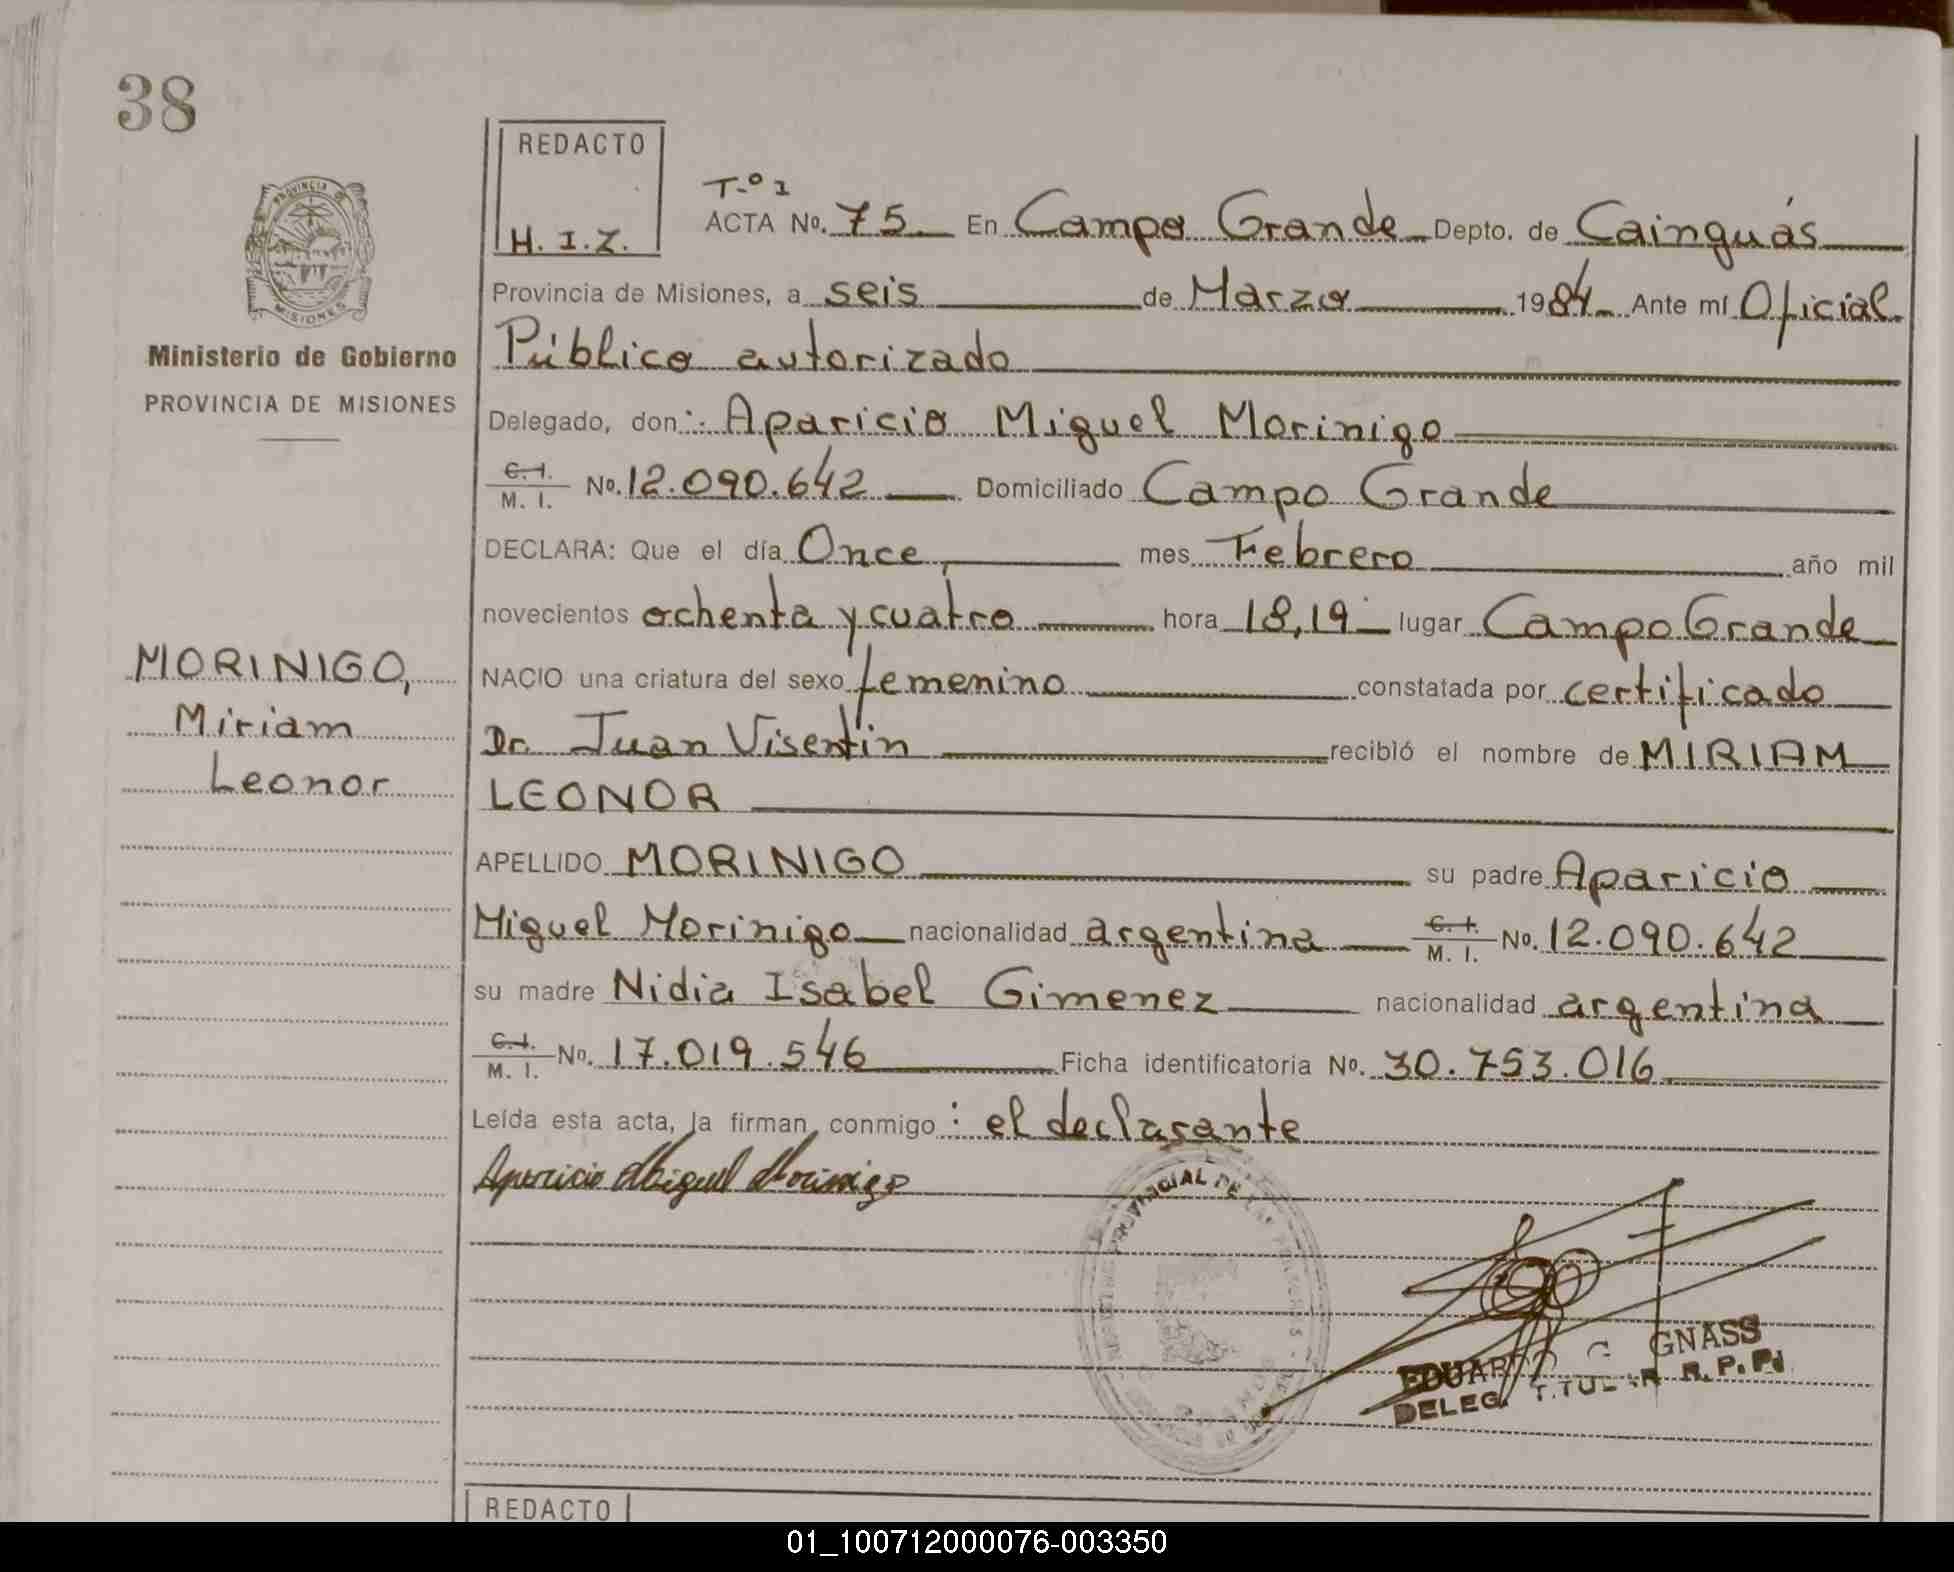 38
PROVINCIA
MISIONES
Ministerio de Gobierno
PROVINCIA DE MISIONES
MORINIGO,
Miriam
Leonor
REDACTO
H. I. Z.
T-º 1
ACTA No. 75 En Campo Grande Depto. de Cainguás
Provincia de Misiones, a seis de Marzo 1984 Ante mí Oficial
Público autorizado
Delegado, don: Aparicio Miguel Morinigo
C. I. M. I. No. 12.090.642 Domiciliado Campo Grande
DECLARA: Que el día Once, mes Febrero año mil
novecientos ochenta y cuatro hora 18,19 lugar Campo Grande
NACIO una criatura del sexo femenino constatada por certificado
Dr. Juan Visentin recibió el nombre de MIRIAM
LEONOR
APELLIDO MORINIGO su padre Aparicio
Miguel Morinigo nacionalidad argentina C. I. M. I. No. 12.090.642
su madre Nidia Isabel Gimenez nacionalidad argentina
C. I. M. I. No. 17.019.546 Ficha identificatoria No. 30.753.016
Leída esta acta, la firman conmigo: el declarante
Aparicio Miguel Morinigo
PROVINCIAL DE LAS PERSONAS
EDUARDO C GNASS
DELEG. TITULAR R.P.P.
REDACTO
01_100712000076-003350